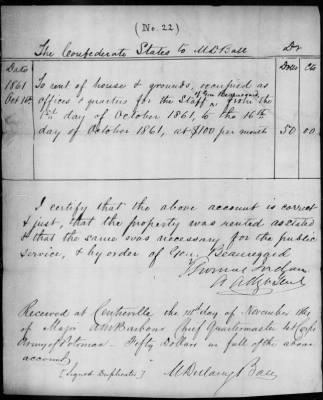 (No. 22)
The Confederate States to M D Ball Dr
Date Dolls Cts
1861 To rent of house & grounds, occupied as
of Gen Beauregard
Oct 16th offices & quarters for the Staff from the
1st day of October 1861, to the 16th
day of October 1861, at $100 per month 50 00
I certify that the above account is correct
& just, that the property was rented as stated
& that the same was necessary for the public
service, & by order of Gen Beauregard
Thomas Jordan
A A Genl
Received at Centreville the day of November 1861
of Major Barbour Chief Quartermaster 1st Corps
Army of Potomac Fifty Dollars in full of the above
account
[Signed Duplicates] M Dulany Ball